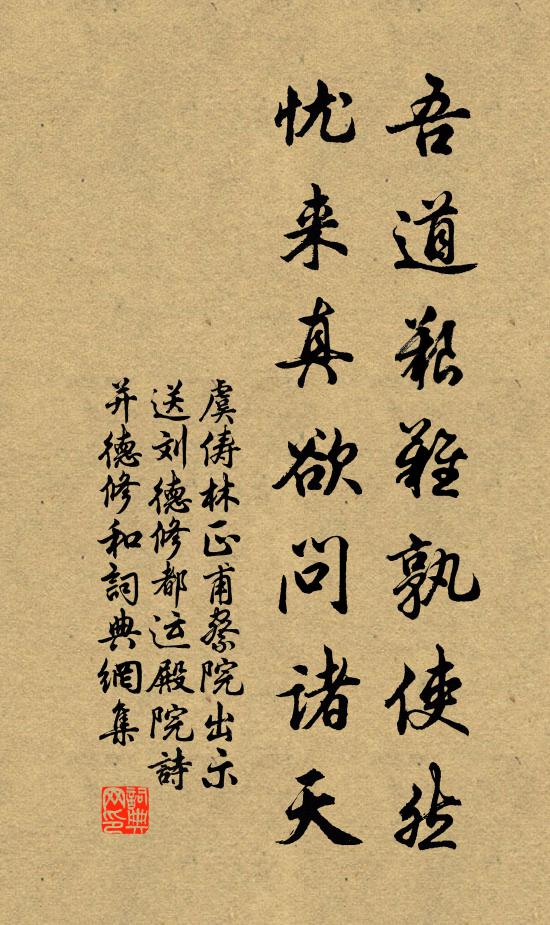 吾道艱難孰使然
忧来真欲问诸天
虞俦林正甫察院出示
送刘德修都运殿院詩
并德修和詞典網集
詞典网印